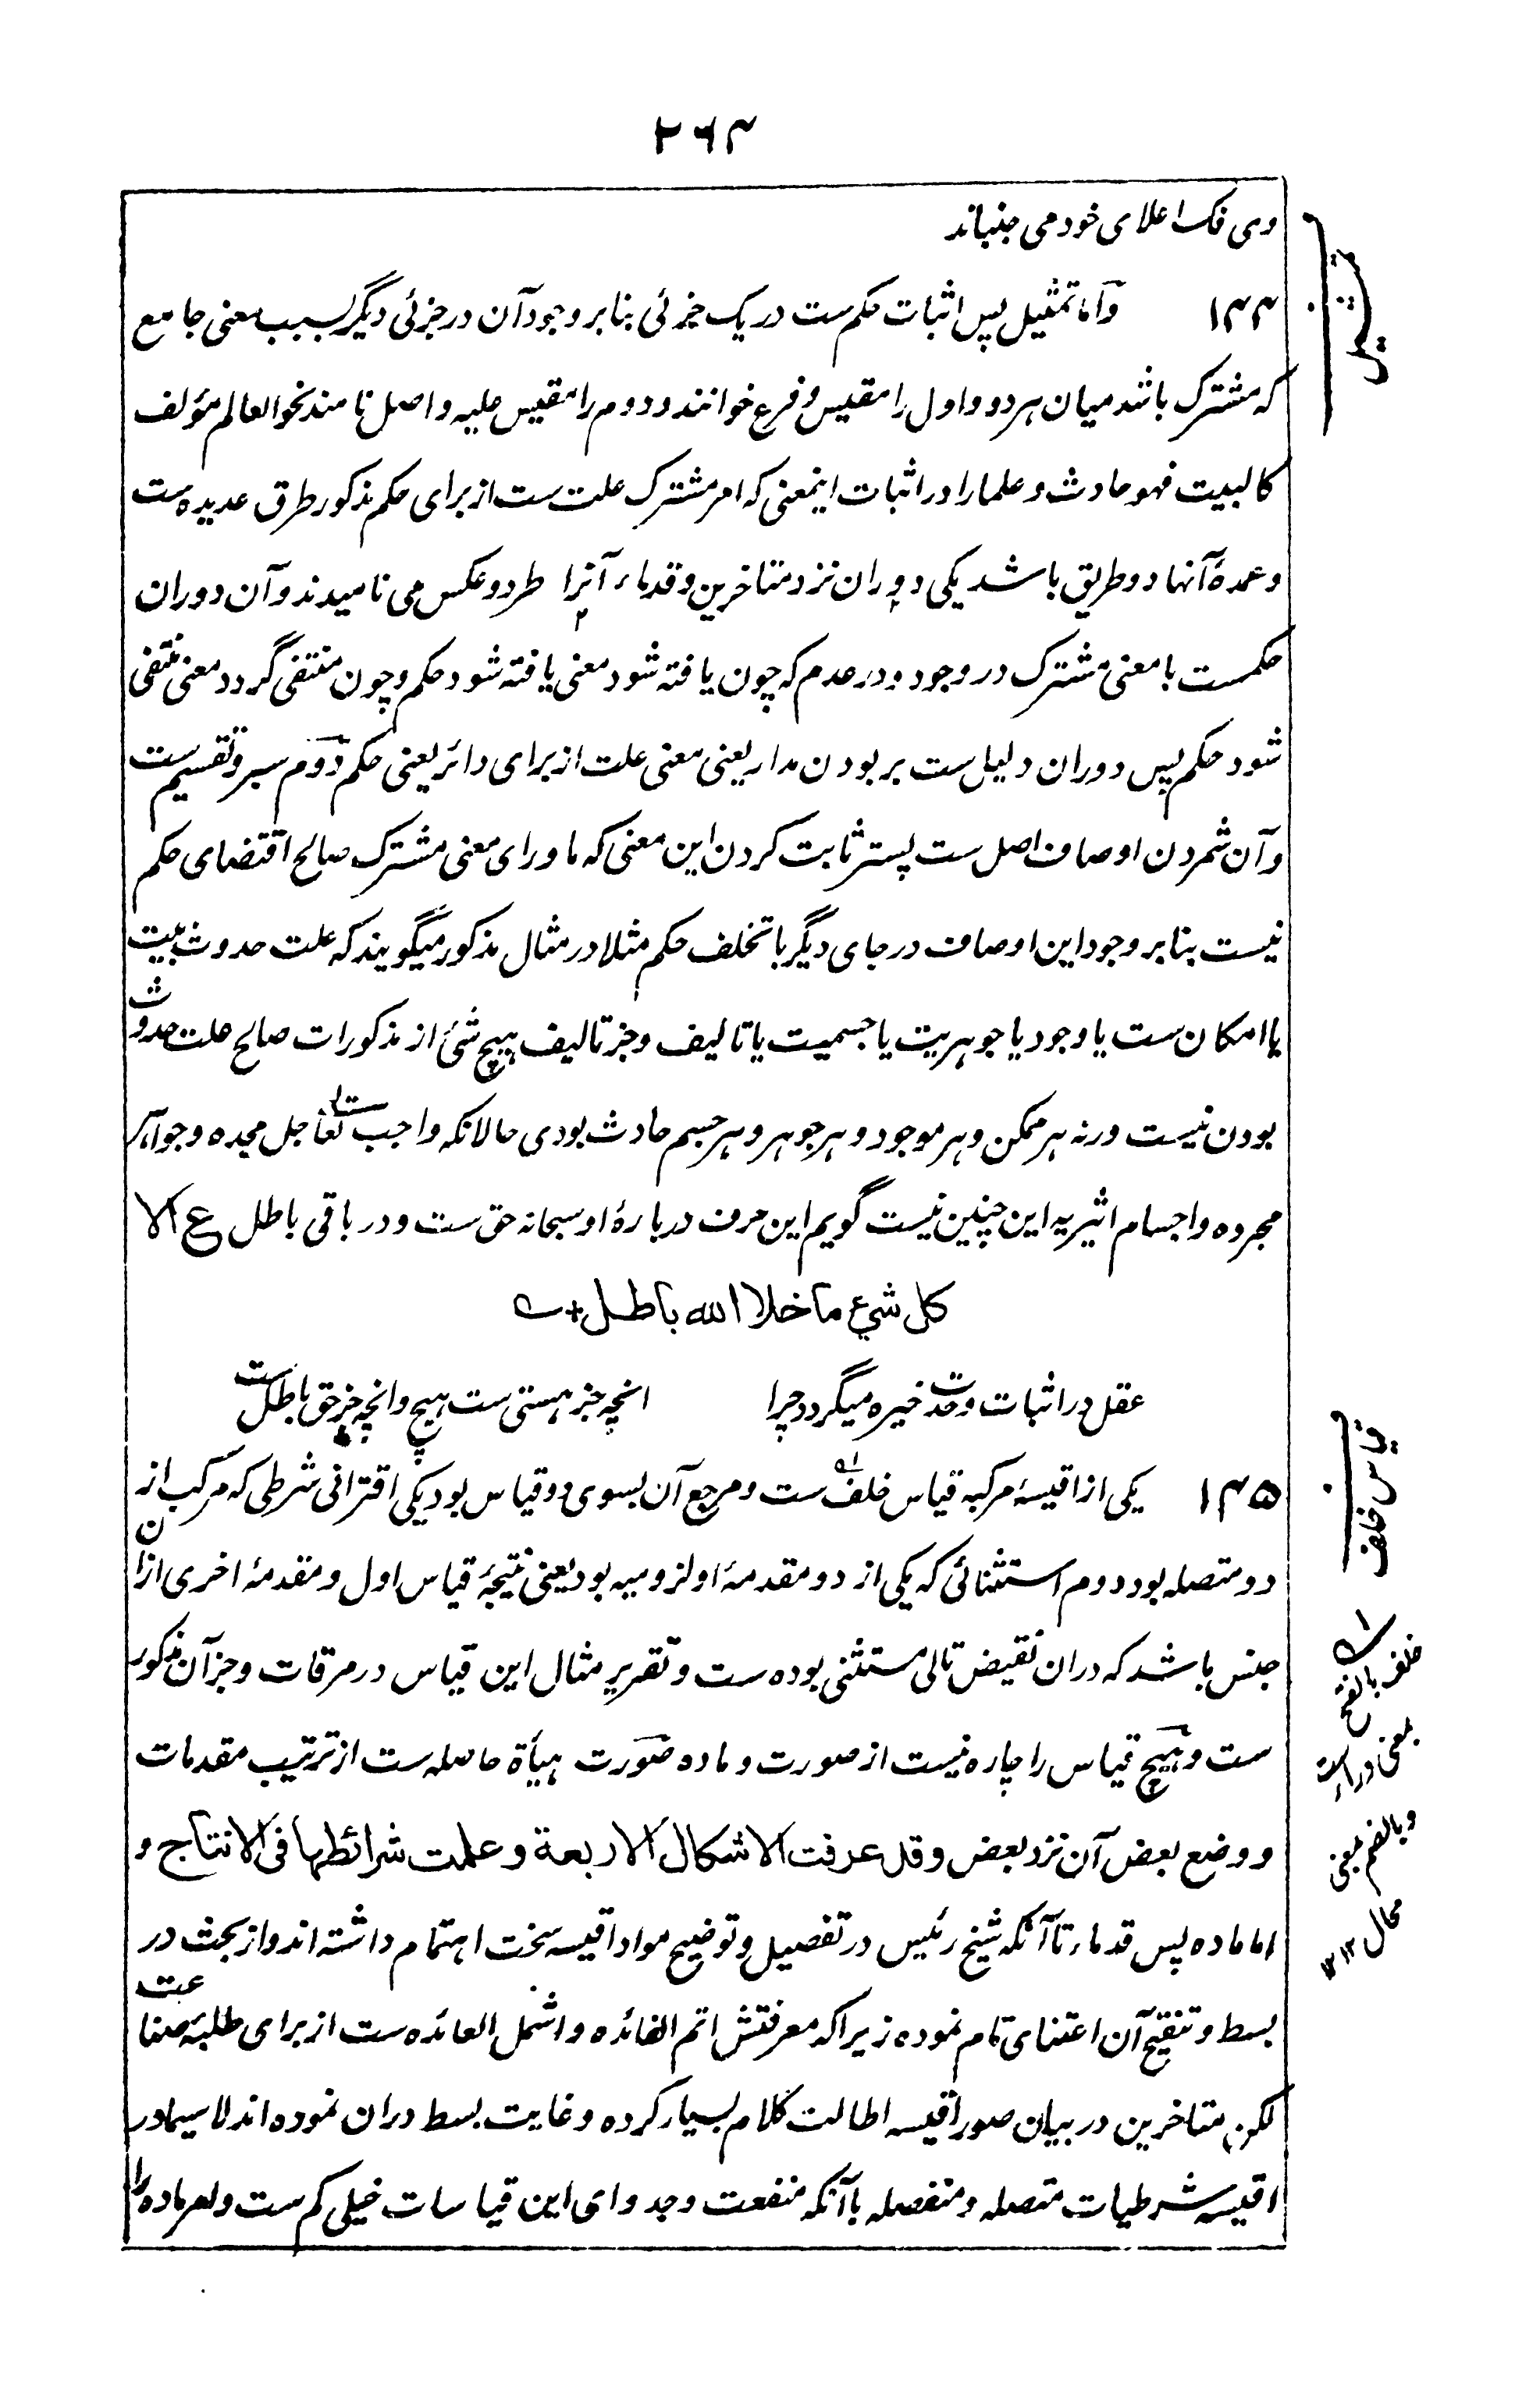 ۲۶۴
وی فک اعلای خود می جنباند
تمثیل
۱۴۴ و اما تمثیل پس اثبات حکم ست در یک جزئی بنا بر وجود آن در جزئی دیگر بسبب معنی جامع
که مشترک باشد میان هر دو و اول را مقیس و فرع خوانند و دوم را مقیس علیه و اصل نامند نحو العالم مؤلف
کالبیت فهو حادث و علما را در اثبات اینمعنی که امر مشترک علت ست از برای حکم مذکور طرق عدیده ست
و عمدهٔ آنها دو طریق باشد یکی دوران نزد متاخرین و قدماء آنرا طرد و عکس می نامیدند و آن دوران
حکمست با معنی مشترک در وجود و در عدم که چون یافته شود معنی یافته شود حکم و چون منتفی گردد معنی منتفی
شود حکم پس دوران دلیل ست بر بودن مدار یعنی معنی علت از برای دائر یعنی حکم دوم سبر و تقسیم ست
و آن شمردن اوصاف اصل ست پستر ثابت کردن این معنی که ماورای معنی مشترک صالح اقتضای حکم
نیست بنا بر وجود این اوصاف در جای دیگر با تخلف حکم مثلا در مثال مذکور میگویند که علت حدوث بیت
یا امکان ست یا وجود یا جوهریت یا جسمیت یا تالیف و جز تالیف هیچ شئ از مذکورات صالح علت حدوث
بودن نیست ورنه هر ممکن و هر موجود و هر جوهر و هر جسم حادث بودی حالانکه واجب تعالی جل مجده و جواهر
مجرده و اجسام اثیریه این چنین نیست گویم این حرف در بارهٔ او سبحانه حق ست و در باقی باطل ع الا
کل شیء ما خلا الله باطل + ے
عقل در اثبات وحدت خیره میگردد چرا انچه جز هستی ست هیچ و انچه جز حق باطل ست
قیاس خلف
۱۴۵ یکی از اقیسهٔ مرکبه قیاس خلف ست و مرجع آن بسوی دو قیاس بود یکی اقترانی شرطی که مرکب از
دو متصله بود دوم استثنائی که یکی از دو مقدمهٔ او لزومیه بود یعنی نتیجهٔ قیاس اول و مقدمهٔ اخری ازان
جنس باشد که دران نقیض تالی مستثنی بوده ست و تقریر مثال این قیاس در مرقات و جز آن مذکور
ست و هیچ قیاس را چاره نیست از صورت و ماده صورت هیأة حاصله ست از ترتیب مقدمات
و وضع بعض آن نزد بعض وقد عرفت الاشکال الاربعة وعلمت شرائطها فی الانتاج و
اما ماده پس قدماء تا آنکه شیخ رئیس در تفصیل و توضیح مواد اقیسه سخت اهتمام داشته اند و از بحث در
بسط و تنقیح آن اعتنای تام نموده زیرا که معرفتش اتم الفائده و اشمل العائده ست از برای طلبهٔ صناعت
لکن متاخرین در بیان صور اقیسه اطالت کلام بسیار کرده و غایت بسط دران نموده اند لا سیما در
اقیسه شرطیات متصله و منفصله با آنکه منفعت و جدوای این قیاسات خیلی کم ست و امر ماده را
خلف بالفتح
بمعنی وراء ست
و بالضم بمعنی
محال ۱۲